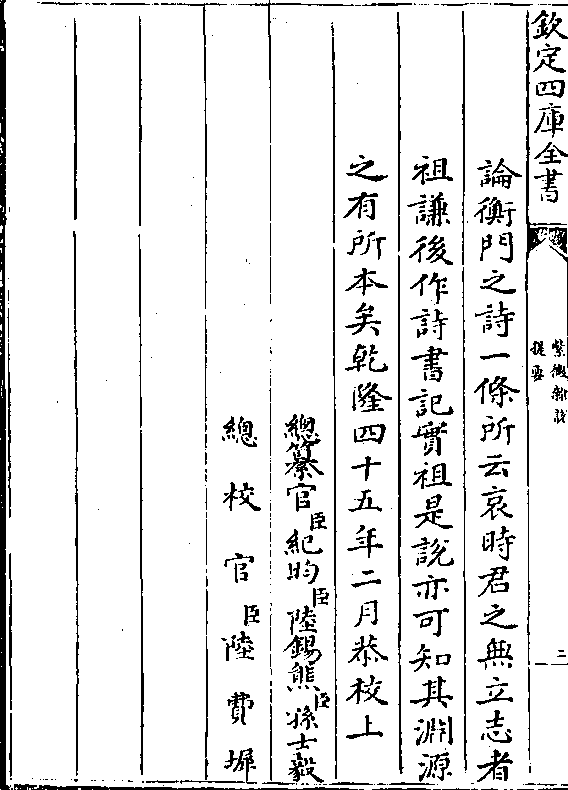 欽定四庫全書
紫微雜說
提要
二
論衡門之詩一條所云哀時君之無立志者
祖謙後作詩書記實祖是說亦可知其淵源
之有所本矣乾隆四十五年二月恭校上
總纂官臣紀昀臣陸錫熊臣孫士毅
總校官臣陸費墀